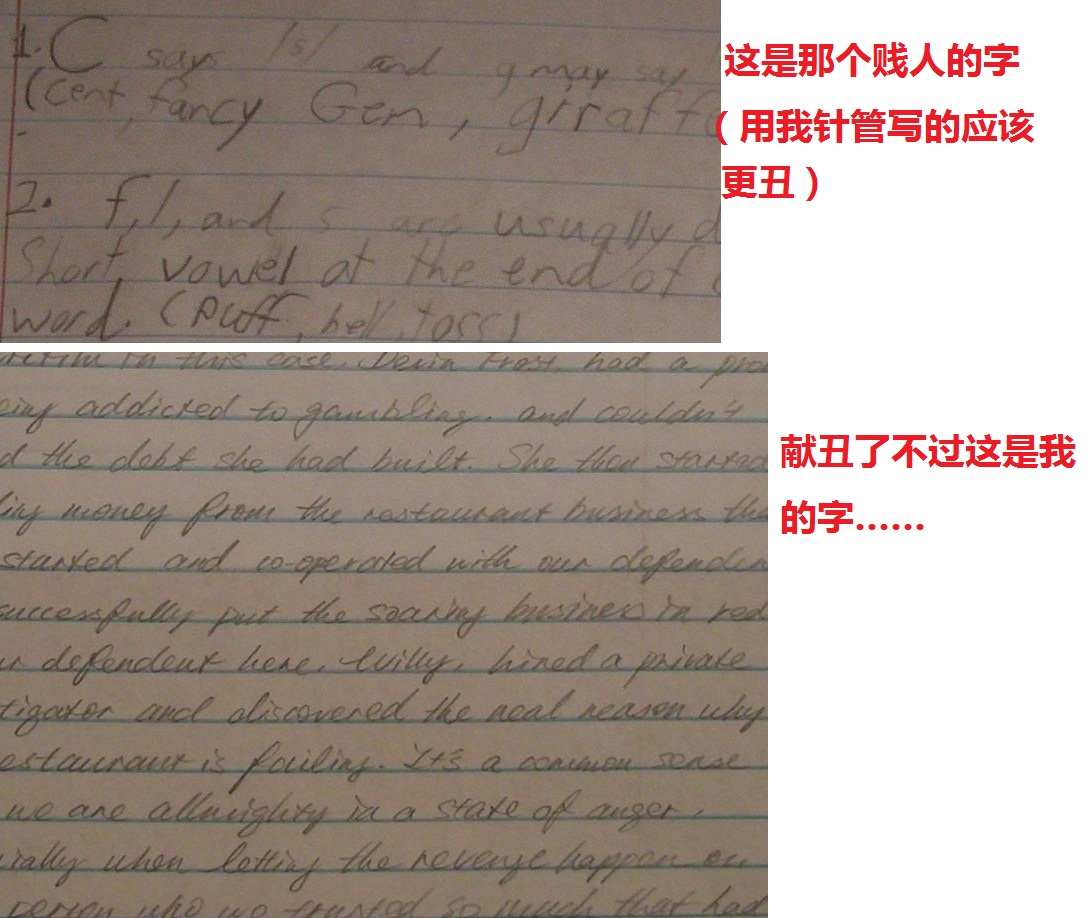 1. C says /s/ and g may say
(cent, fancy Gem, giraff
2. f, l, and s are usually d
Short vowel at the end of
word. (puff, hell, toss)
这是那个贱人的字
（用我针管写的应该
更丑）
in this case. Devin Frost had a pro
eing addicted to gambling. and couldn't
d the debt she had built. She then started
ling money from the restaurant business tha
started and co-operated with our defenden
successfully put the soaring business in red
ur defendent here, Willy, hired a private
tigator and discovered the real reason why
estaurant is failing. It's a common sense
we are allmighty in a state of anger.
cially when letting the revenge happen on
person who we trusted so much that had
献丑了不过这是我
的字……